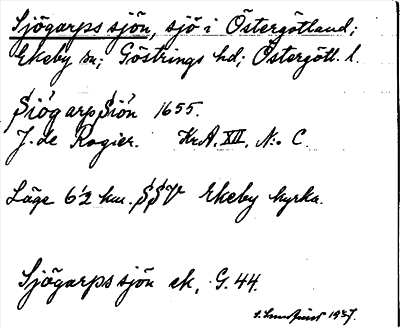 Sjögarpssjön, sjö i Östergötland;
Ekeby sn; Göstrings hd; Östergötl. l.
Siögarp Siön 1655.
J. de Rogier. KrA. XII. N:o C.
Läge 6½ km. SSV Ekeby kyrka.
Sjögarpssjön ek. G. 44.
1927.